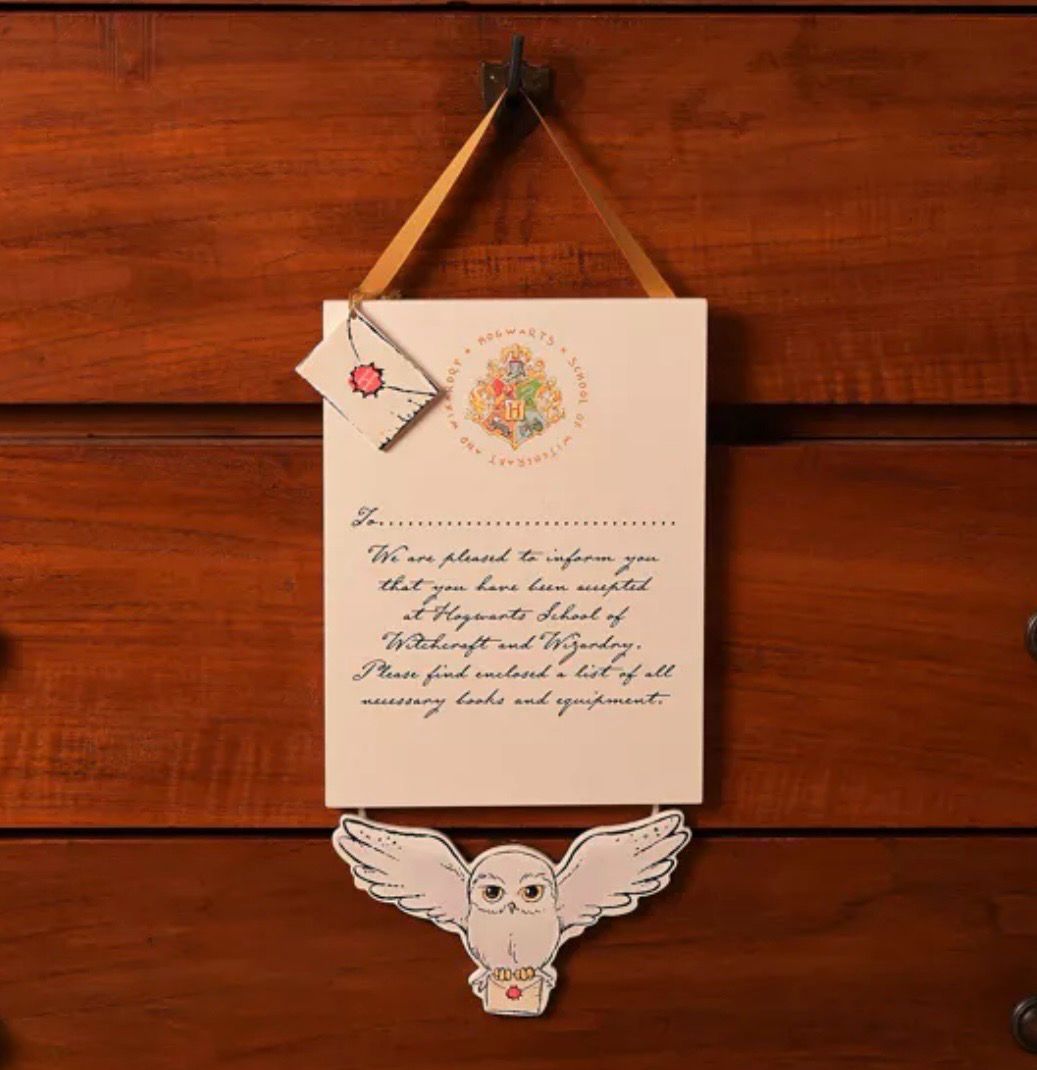 HOGWARTS SCHOOL OF WITCHCRAFT AND WIZARDRY
H
To................................
We are pleased to inform you
that you have been accepted
at Hogwarts School of
Witchcraft and Wizardry.
Please find enclosed a list of all
necessary books and equipment.